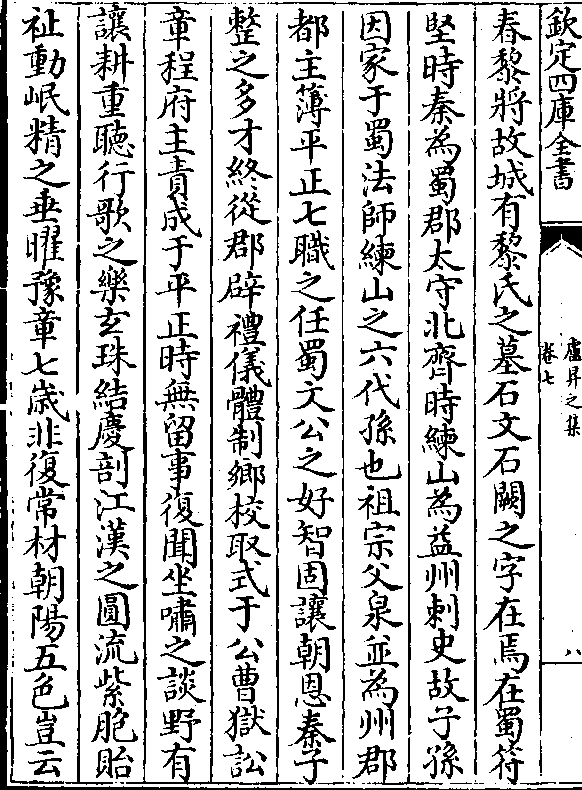 欽定四庫全書
盧昇之集
卷七
八
春黎將故城有黎氏之墓石文石闕之字在焉在蜀符
堅時秦為蜀郡太守北齊時練山為益州刺史故子孫
因家于蜀法師練山之六代孫也祖宗父泉並為州郡
都主簿平正七職之任蜀文公之好智固讓朝恩秦子
整之多才終從郡辟禮儀體制鄉校取式于公曹獄訟
章程府主責成于平正時無留事復聞坐嘯之談野有
讓耕重聽行歌之樂玄珠結慶剖江漢之圓流紫胞貽
祉動岷精之垂曜豫章七歲非復常材朝陽五色豈云